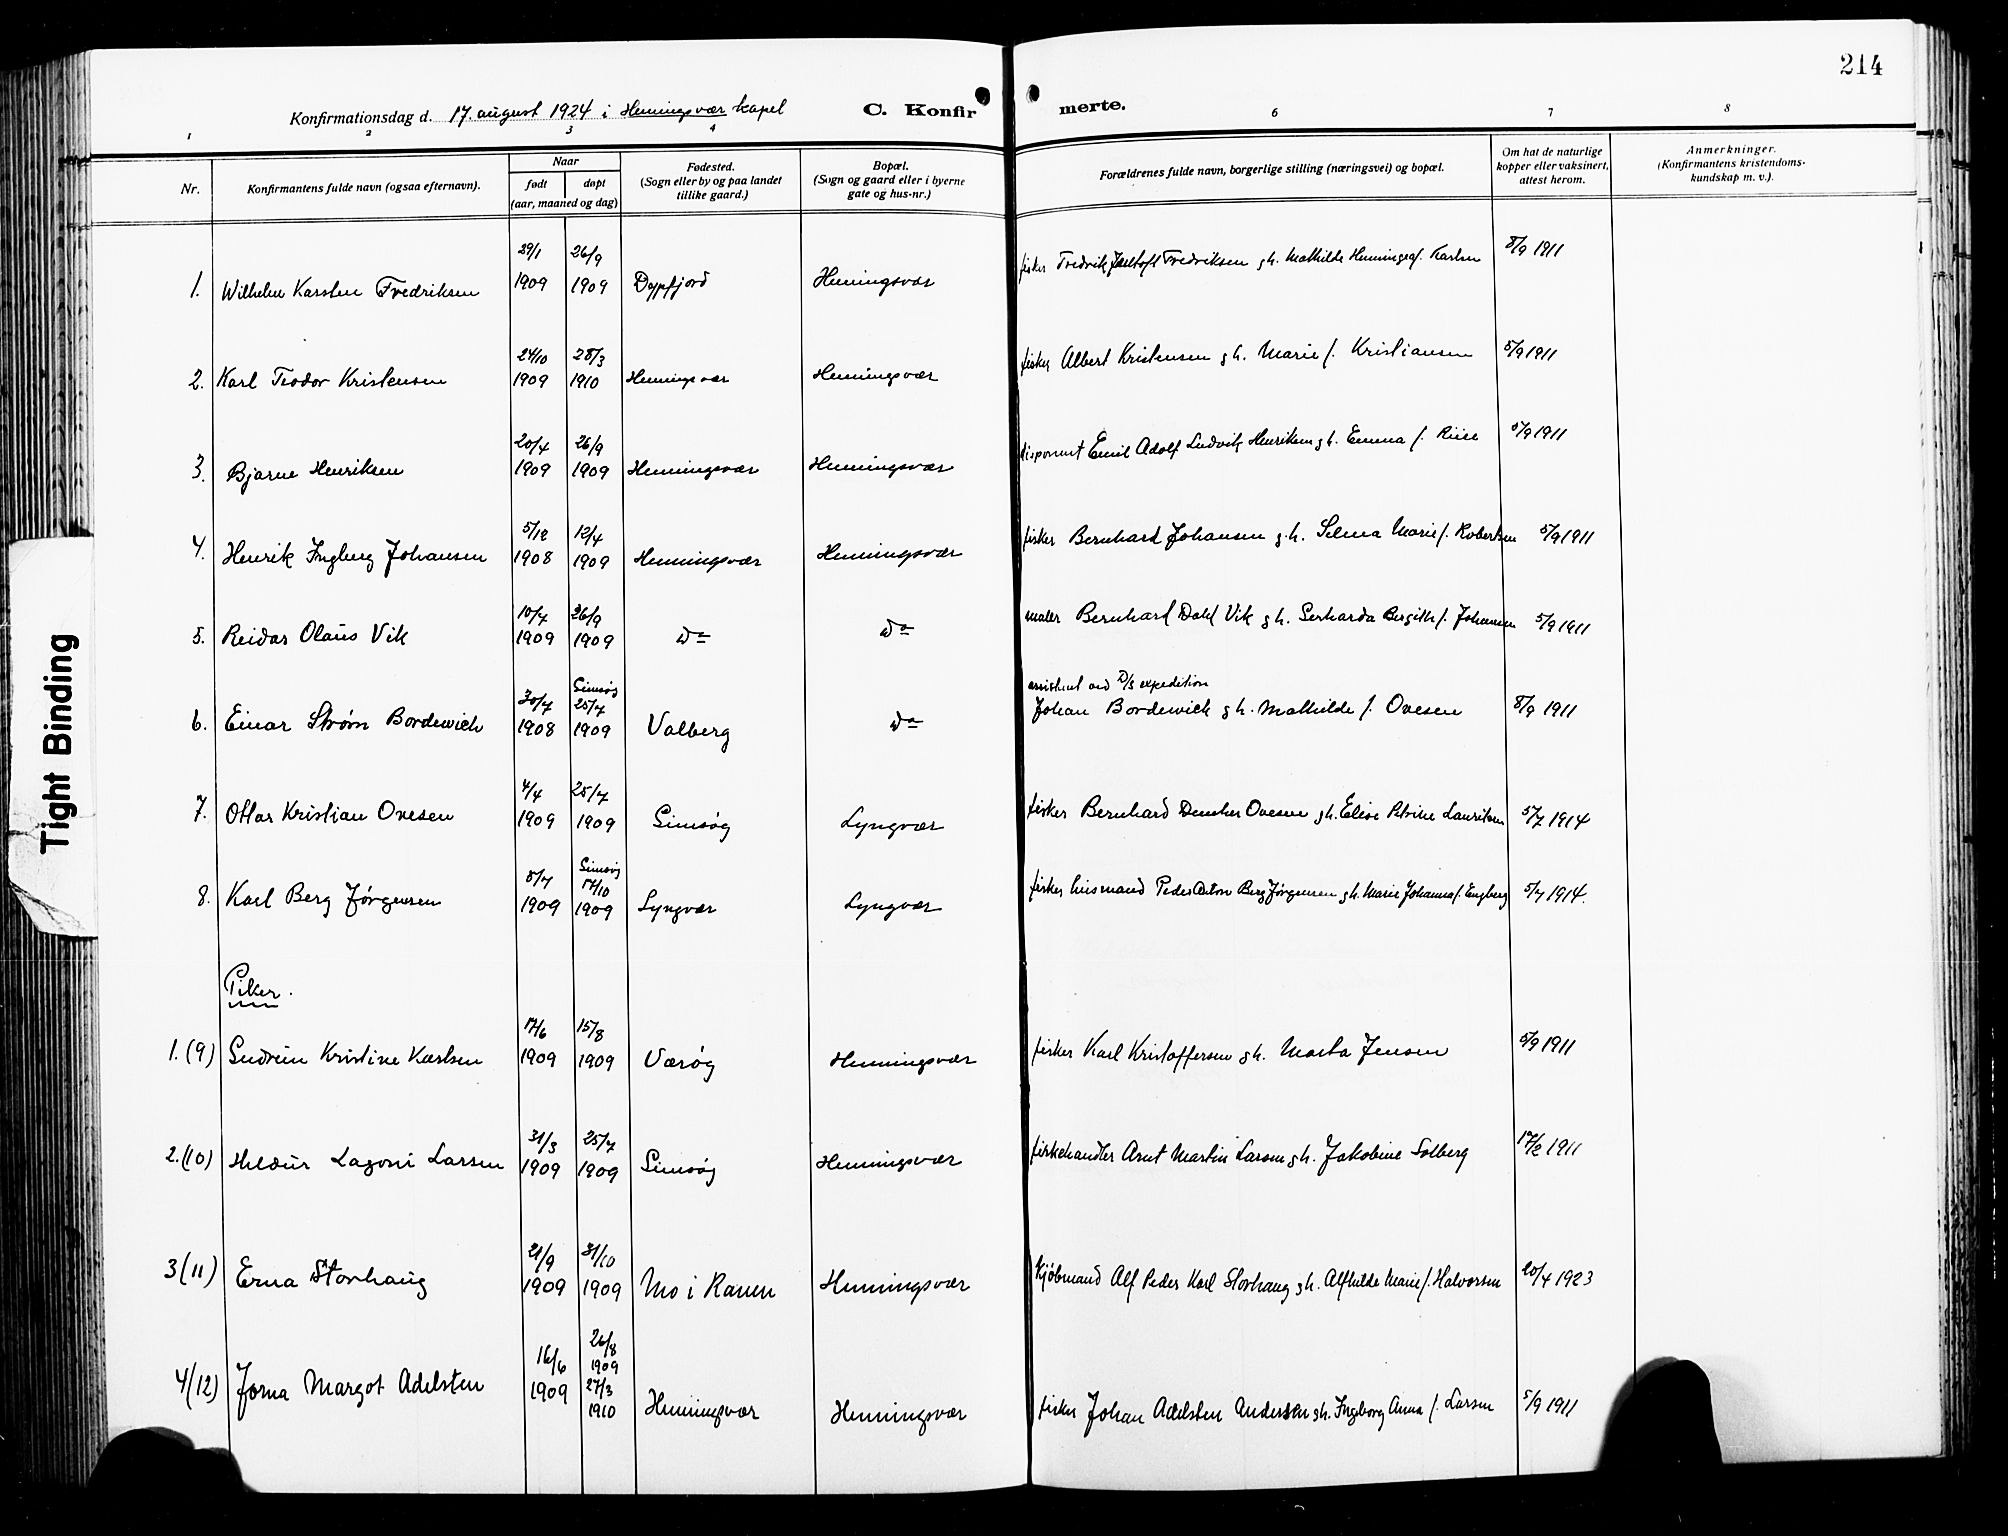 214
Konfirmationsdag d. 17. august 1924 i Henningsvær kapel C. Konfirmerte.
1 2 3 4 6 7 8
Nr. Konfirmantens fulde navn (ogsaa efternavn). Naar født døpt (aar, maaned og dag) Fødested. (Sogn eller by og paa landet tillike gaard.) Bopæl. (Sogn og gaard eller i byerne gate og hus-nr.) Forældrenes fulde navn, borgerlige stilling (næringsvei) og bopæl. Om hat de naturlige kopper eller vaksinert, attest herom. Anmerkninger. (Konfirmantens kristendoms-kundskap m. v.).
1. Wilhelm Karsten Fredriksen 29/1 1909 26/9 1909 Døpfjord Henningsvær fisker Fredrik Fredriksen gh. Mathilde f. Karlsen 8/9 1911
2. Karl Teodor Kristensen 24/10 1909 28/3 1910 Henningsvær Henningsvær fisker Albert Kristensen gh. Marie f. Kristiansen 5/9 1911
3. Bjarne Henriksen 20/4 1909 26/9 1909 Henningsvær Henningsvær disponent Emil Adolf Ludvik Henriksen gh. Emma f. Riise 5/9 1911
4. Henrik Ingberg Johansen 5/12 1908 12/4 1909 Henningsvær Henningsvær fisker Bernhard Johansen g.h. Selma Marie f. Robertsen 5/9 1911
5. Reidar Olaus Vik 10/7 1909 26/9 1909 do do maler Bernhard Dahl Vik gh. Gerharda Bergithe f. Johansen 5/9 1911
6. Einar Strøm Bordewich 30/7 1908 Gimsøy 25/7 1909 Valberg do assistent ved D/S expedition
Johan Bordewick gh. Mathilde f. Ovesen 8/9 1911
7. Ottar Kristian Ovesen 4/4 1909 25/7 1909 Gimsøy Lyngvær fisker Bernhard Ovesen gh. Elise Petrine Lauritsen 5/7 1914
8. Karl Berg Jørgensen 5/7 1909 Gimsøy 17/10 1909 Lyngvær Lyngvær fisker husmand Peder Anton Berg Jørgensen gh. Marie Johanna f. Engberg 5/7 1914.
Piker.
1. (9) Gudrun Kristine Karlsen 17/6 1909 15/8 1909 Værøy Henningsvær fisker Karl Kristoffersen gh. Marta Jensen 5/9 1911
2. (10) Hildur Lagoni Larsen 31/3 1909 25/7 1909 Gimsøy Henningsvær fiskehandler Arnt Martin Larsen gh. Jakobine Solberg 17/2 1911
3 (11) Erna Storhaug 21/9 1909 31/10 1909 Mo i Ranen Henningsvær Kjøbmand Alf Peder Karl Storhaug gh. Alfhilde Marie f. Halvorsen 20/4 1923
4 (12) Jorna Margot Adelsten 16/6 1909 26/8 1909 27/3 1910 Henningsvær Henningsvær fisker Johan Adelsten Andersen gh. Ingborg Anna f. Larsen 5/9 1911
Tight Binding